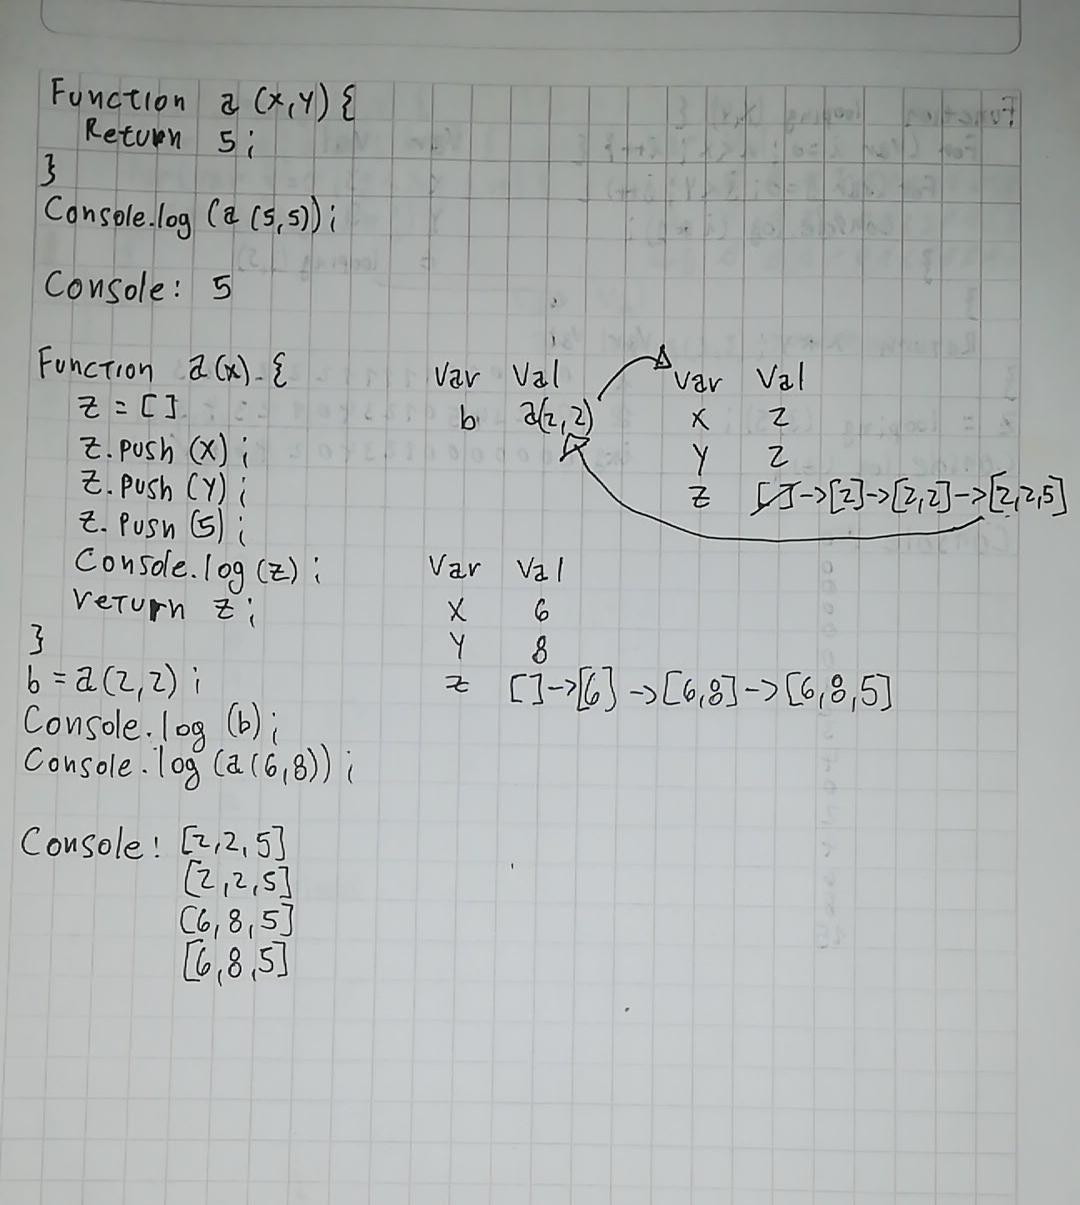 Function a (x,y) {
Return 5;
}
Console.log (a (5,5));
Console: 5
Function a(x) {
z = []
z.push (x);
z.push (y);
z.push (5);
Console.log (z);
return z;
}
b = a(2,2);
Console.log (b);
Console.log (a(6,8));
Console: [2,2,5]
[2,2,5]
[6,8,5]
[6,8,5]
Var Val
b a(2,2)
Var Val
x 2
y 2
z []->[2]->[2,2]->[2,2,5]
Var Val
x 6
y 8
z []->[6] ->[6,8]->[6,8,5]